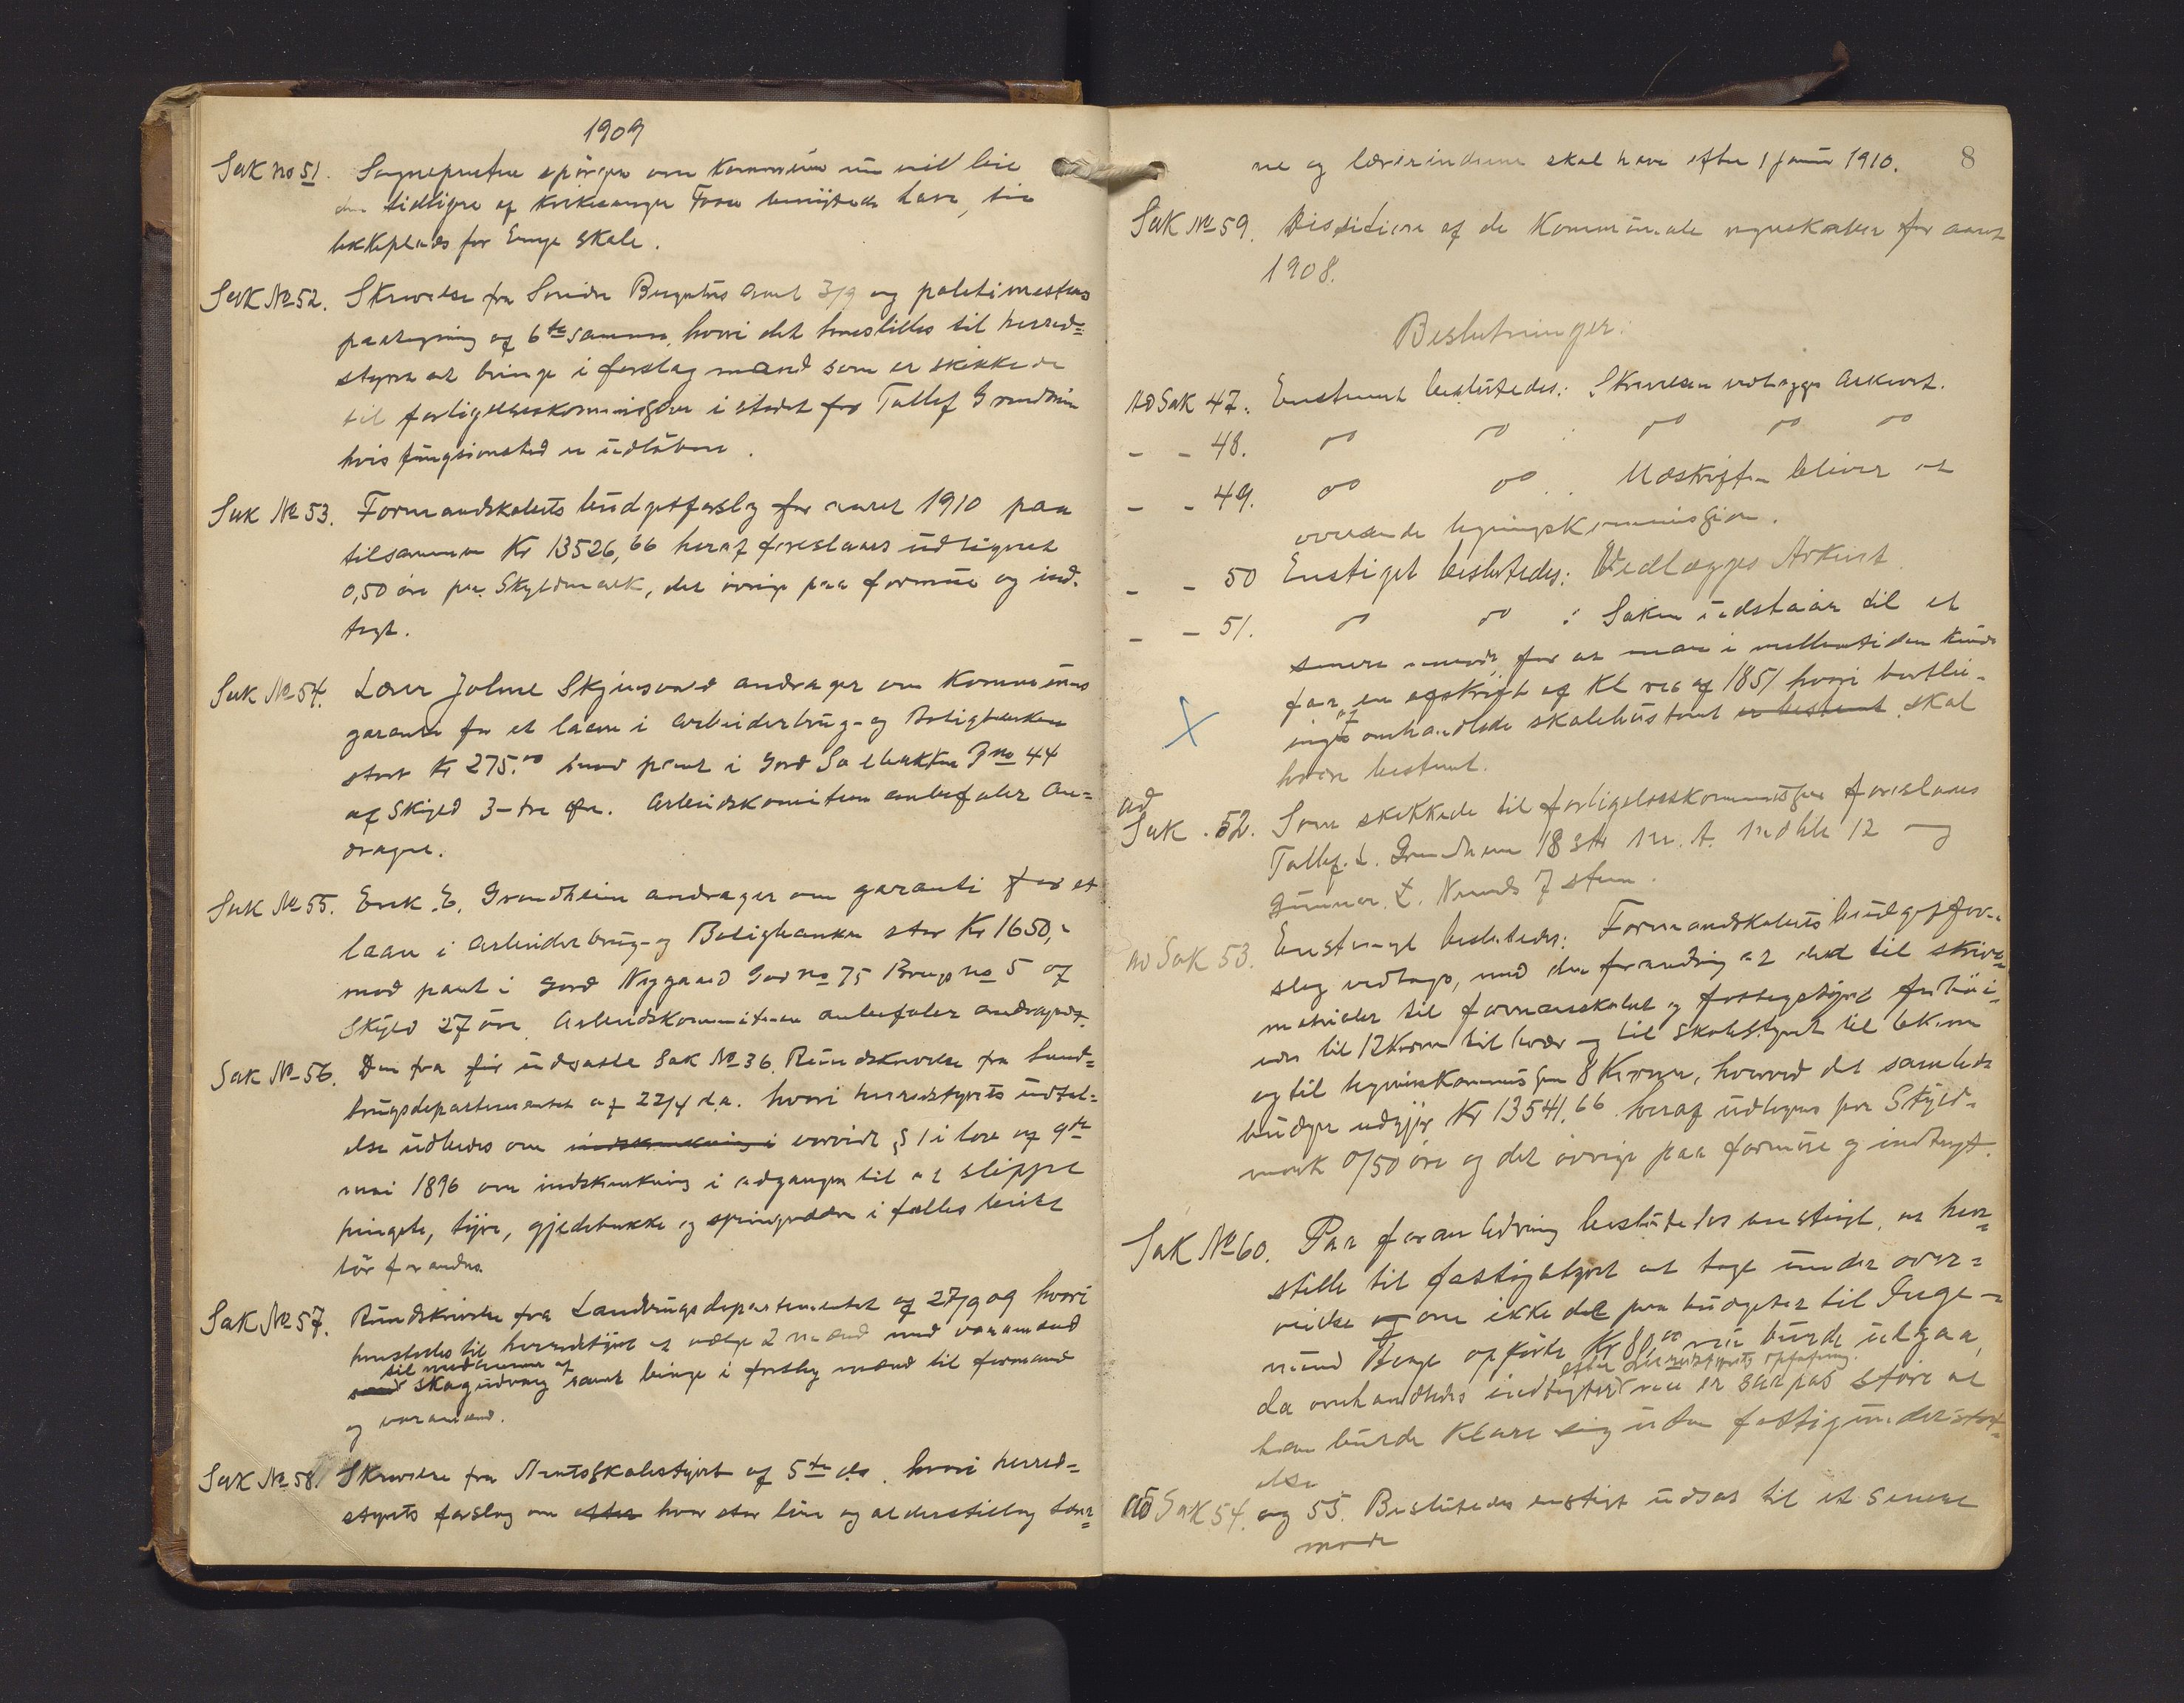 1909
Sak no 51. Sognepresten spörger om Kommunen nu vil leie
den tidligere af Kirkesanger Foss benyttede have, til
lekeplads for Enge skole.
Sak № 52. Skrivelse fra Sondre datert 3/9 og politimesterens
paategning af 6te samme, hvori det henstilles til herred=
styret at bringe i forslag mænd som er skikkede
til forligelseskommissær i stedet for Tallef Grundheim
hvis fungsionstid er udlöben.
Sak № 53. Formandskabets budgetforslag for aaret 1910 paa
tilsammen Kr 13526,66 heraf foreslaaes udlignet
0,50 öre pr. Skyldmark, det övrige paa formue og ind-
tegt.
Sak № 54. Lærer Johne Skjensvold andrager om Kommunens
garanti for et laan i Arbeiderbrug- og Boligbanken
stort Kr 275.00 mod pant i Gord no 44
af Skyld 3-tre öre. Arbeidskomiteen anbefaler An=
dragne.
Sak № 55. Erik E. Grondheim andrager om garanti for et
laan i Arbeiderbrug- og Boligbanken stor Kr 1650,-
mod pant i gord Nygaard Gord no 75 Brugs no 5 af
Skyld 27 öre. Arbeidskommiteen anbefaler andragendet.
Sak № 56. Den fra för udsatte Sak № 36. Rundskrivelse fra Land=
brugsdepartementet af 22/4 d.a. hvori herredstyrets udtal=
else udbedes om indskrænkning i hvorvidt § 1 i lov af 9de
mai 1896 om indskrænkning i adgangen til at slippe
hingste, tyre, gjedebukke og springvædre i fælles beite
bör forandres.
Sak № 57. Rundskrivelse fra Landbrugsdepartementet af 27/9 09 hvori
henstilles til herredstyret at vælge 2 mænd med varamænd
til medlemmer af
skogudvalg samt bringe i forslag mænd til formand
og varamænd.
Sak № 58. Skrivelse fra Amtsskolestyret af 5te ds. hvori herred=
styrets forslag om efter hvor stor lön og alderstillæg lærer=
8
ne og lærerinderne skal have efter 1 januar 1910.
Sak № 59. Desidision af de Kommunale regnskaber for aaret
1908.
Beslutninger:
Ad Sak 47. Enstemt beslutedes: Skrivelsen vedlægges Arkivet.
- - 48. do do : do do do
- - 49. do do : Udskriften bliver at
oversende ligningskommissjon.
- - 50 Enstiget beslutedes: Vedlægges Arkivet
- - 51. do do : Saken udstaar til et
senere möde for at man i mellemtiden kunde
faa en afskrift af Kl. res af 1851 hvori bortlei-
ingen af omhandlede skolehustomt er bestemt skal
være bestemt.
ad
Sak . 52. Som skikkede til forligelseskommissær foreslaaes
Tallef. L. Grundheim 18 st 12 og
Gunnar. L. 7 stem.
ad Sak 53. Enstemigt besluttedes: Formandskabets budgetfor-
slag vedtages, med den forandring at det til skrive=
materialer til formanskabet og fattigstyret forhöi=
edes til 12 Kroner til hver og til Skolestyret til 6 Kroner
og til ligningskommissjon 8 Kroner, hvorved det samlede
budget udgjör Kr 13541.66 heraf udlignes pr Skyld-
mark 0/50 öre og det övrige paa formue og indtegt.
Sak № 60. Paa foranledning beslutedes enstigt, at hen=
stille til fattigstyret at tage under over=
veielse og om ikke det paa budgetet til Inge-
mund Henge opförte Kr 80,00 nu burde udgaa,
efter herredstyrets opfatning
da omhandledes indtegter nu er saa pas store at
han burde klare sig uden fattigunderstöt=
else
ad Sak 54. og 55. Beslutedes enstigt udsat til et senere
möde